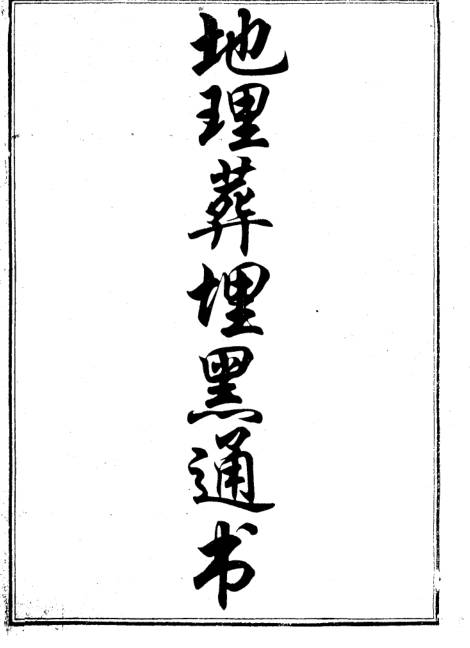 地理葬埋黑通书